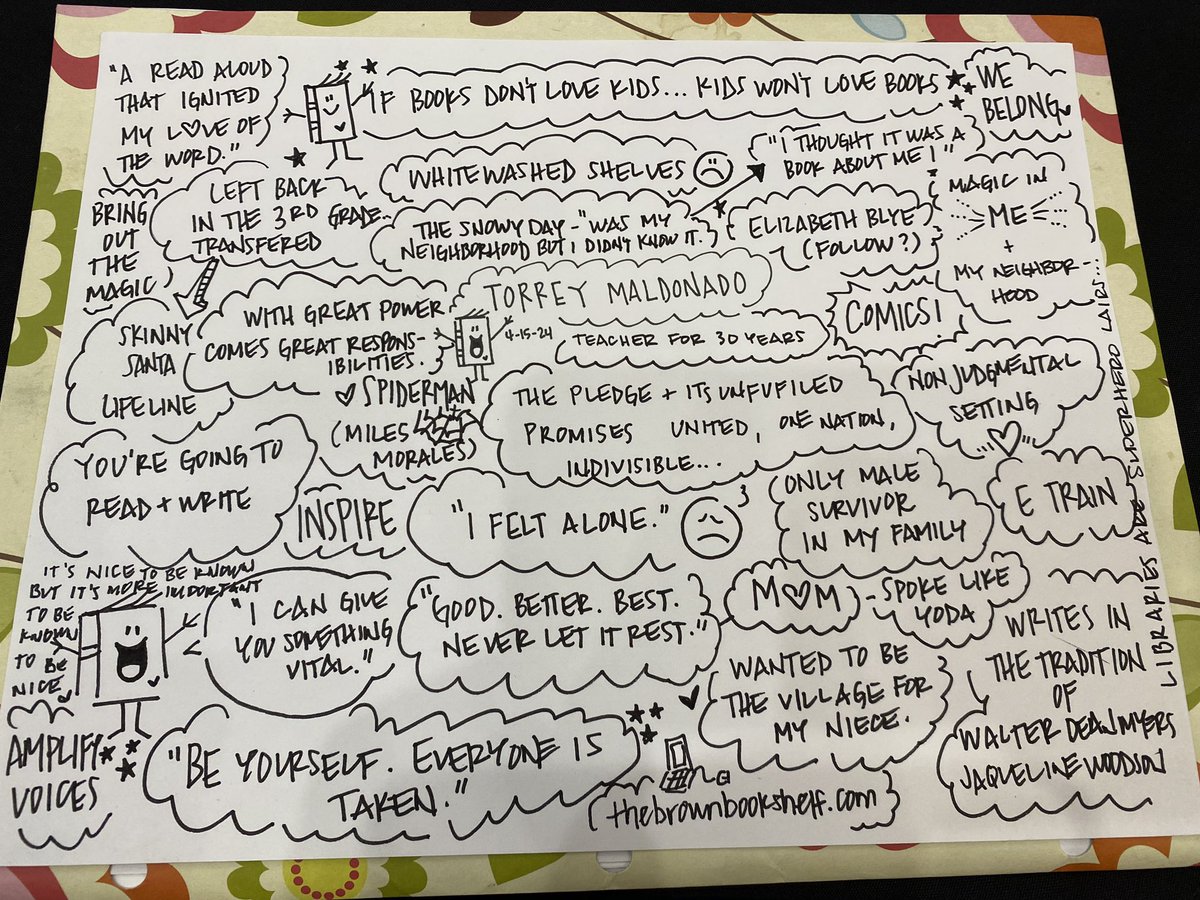 "A READ ALOUD
THAT IGNITED
MY LOVE OF
THE WORD."
IF BOOKS DON'T LOVE KIDS... KIDS WON'T LOVE BOOKS
WE
BELONG
WHITEWASHED SHELVES
"I THOUGHT IT WAS A
BOOK ABOUT ME!"
BRING
OUT
THE
MAGIC
LEFT BACK
IN THE 3RD GRADE-
TRANSFERED
THE SNOWY DAY - "WAS MY
NEIGHBORHOOD BUT I DIDN'T KNOW IT.
ELIZABETH BLYE
(FOLLOW?)
MAGIC IN
ME
+
MY NEIGHBOR-
HOOD
SKINNY
SANTA
LIFELINE
WITH GREAT POWER
COMES GREAT RESPONS-
IBILITIES.
SPIDERMAN
(MILES
MORALES)
TORREY MALDONADO
4-15-24
TEACHER FOR 30 YEARS
COMICS!
NON JUDGMENTAL
SETTING
THE PLEDGE + ITS UNFUFILED
PROMISES UNITED, ONE NATION,
INDIVISIBLE...
YOU'RE GOING TO
READ + WRITE
INSPIRE
"I FELT ALONE."
ONLY MALE
SURVIVOR
IN MY FAMILY
E TRAIN
LIBRARIES ARE SUPERHERO LAIRS...
IT'S NICE TO BE KNOWN
BUT IT'S MORE IMPORTANT
TO BE
KNOWN
TO BE
NICE
"I CAN GIVE
YOU SOMETHING
VITAL."
"GOOD. BETTER. BEST.
NEVER LET IT REST."
MOM
- SPOKE LIKE
YODA
WANTED TO BE
THE VILLAGE FOR
MY NIECE.
WRITES IN
THE TRADITION
OF
WALTER DEAN MYERS
JAQUELINE WOODSON
AMPLIFY
VOICES
"BE YOURSELF. EVERYONE IS
TAKEN."
thebrownbookshelf.com